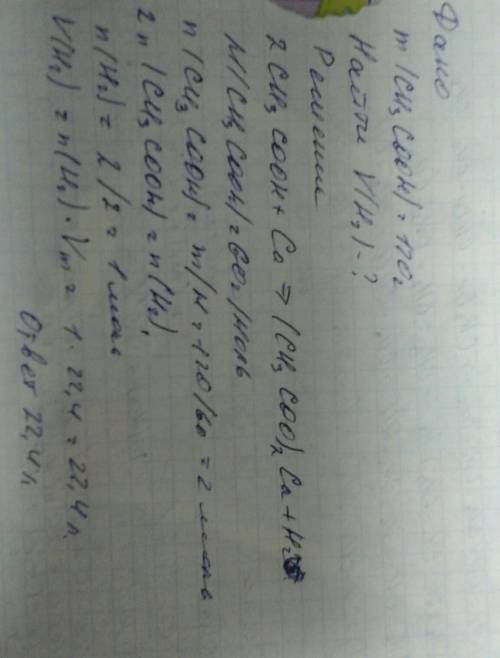 Дано
m(CH₃COOH)=120г
Найти V(H₂)-?
Решение
2CH₃COOH+Ca⇒(CH₃COO)₂Ca+H₂
M(CH₃COOH)=60г/моль
n(CH₃COOH)=m/M=120/60=2 моль
2n(CH₃COOH)=n(H₂),
n(H₂)=2/2=1моль
V(H₂)=n(H₂)·Vm=1·22,4=22,4л.
Ответ 22,4л